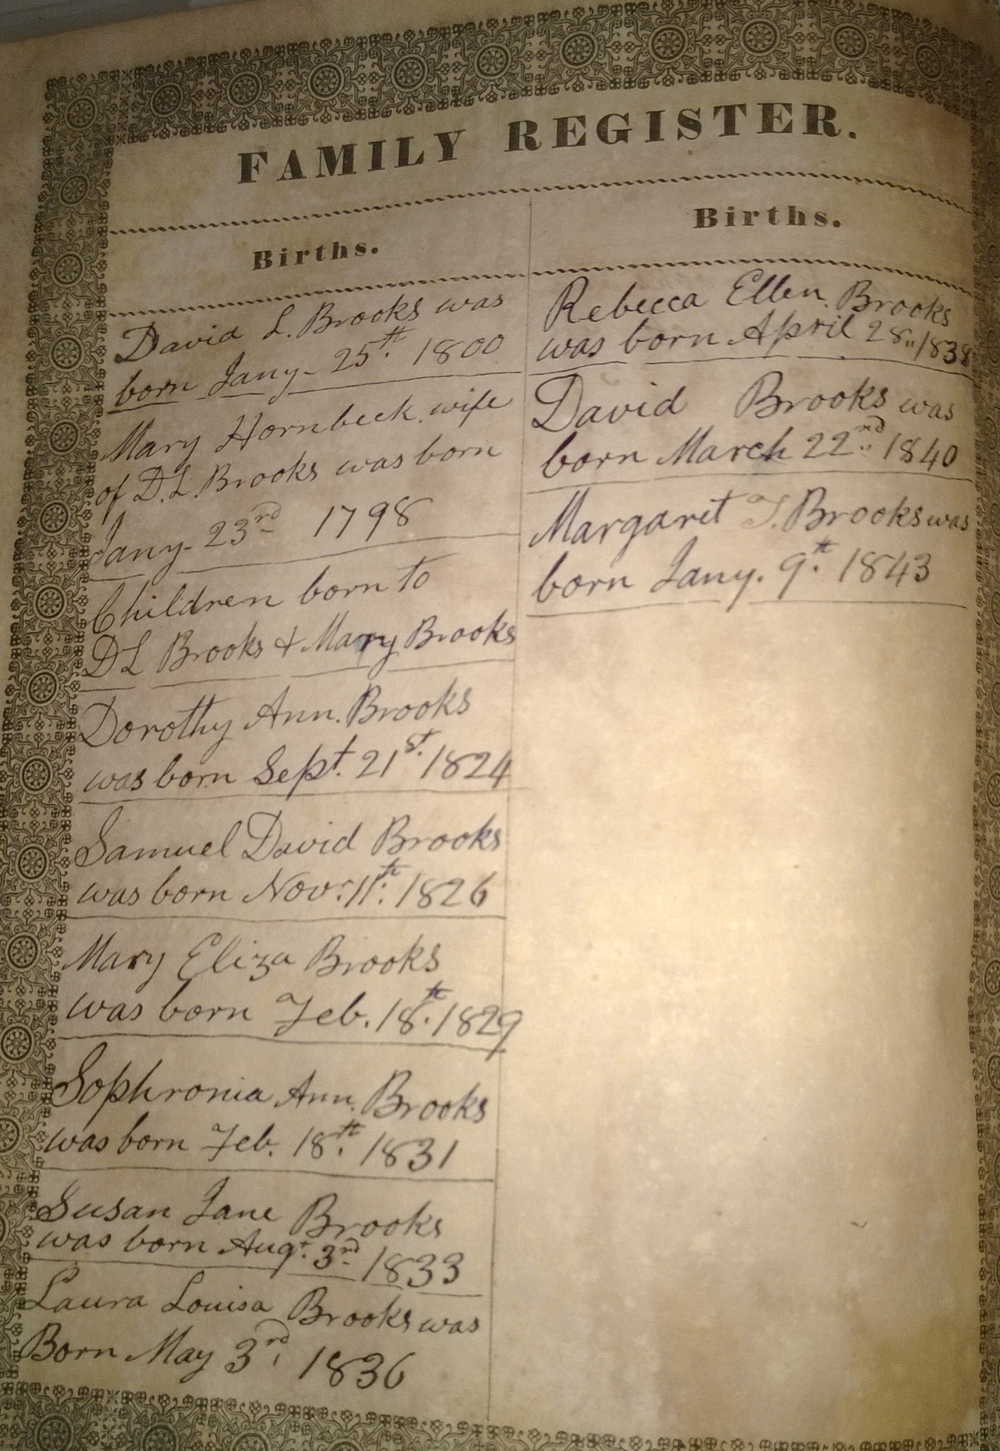 FAMILY REGISTER.
Births.
David L. Brooks was
born Jany. 25th. 1800
Mary Hornbeck. wife
of D. L. Brooks was born
Jany. 23rd 1798
Children born to
D L Brooks & Mary Brooks
Dorothy Ann. Brooks
was born Sept. 21st. 1824
Samuel David Brooks
was born Nov. 11th. 1826
Mary Eliza Brooks
was born Feb. 18th. 1829
Sophronia Ann. Brooks
was born Feb. 18th. 1831
Susan Jane Brooks
was born Augt. 3rd 1833
Laura Louisa Brooks was
Born May 3rd. 1836
Births.
Rebecca Ellen. Brooks
was born April 28.. 1838
David Brooks was
born March 22nd.. 1840
Margaret T. Brooks was
born Jany. 9th. 1843